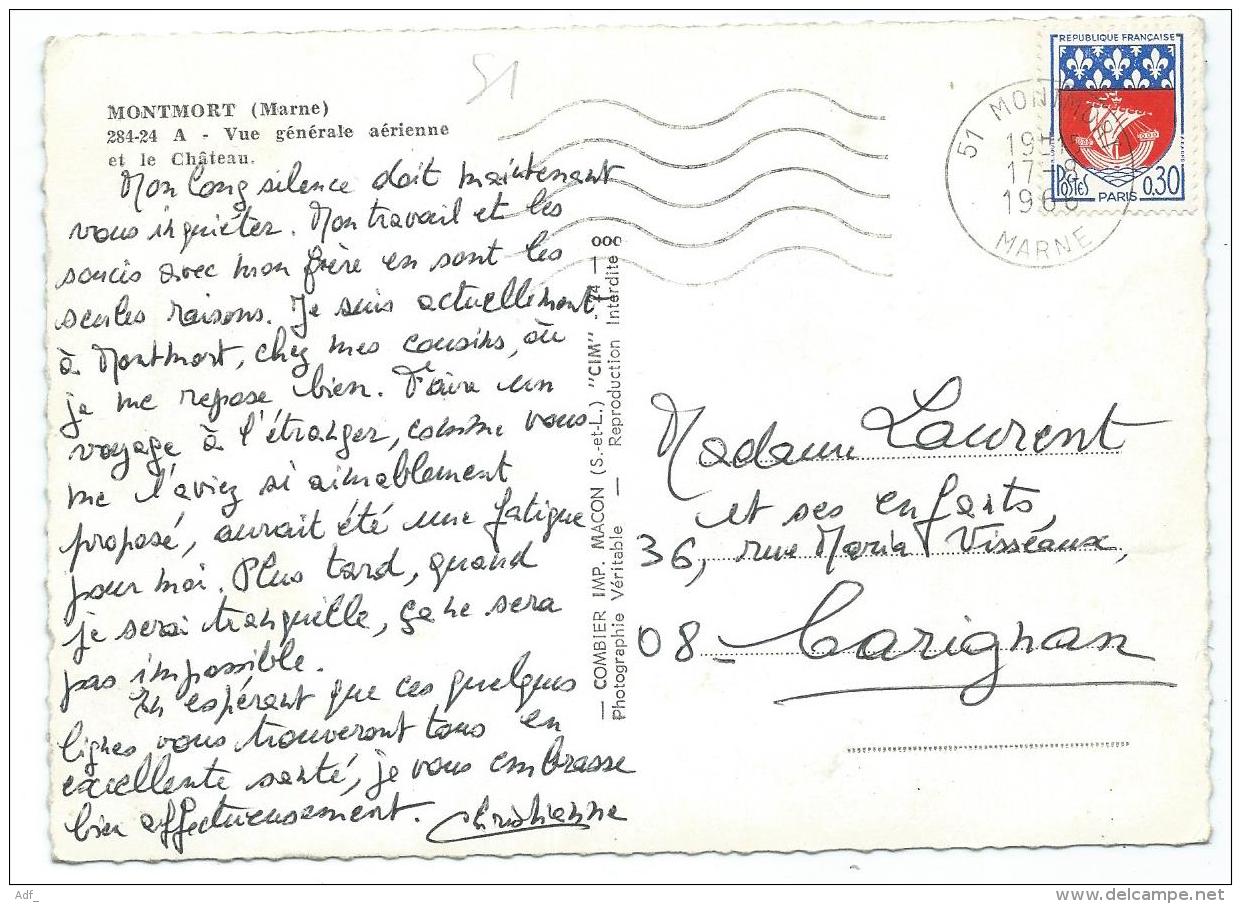 51
MONTMORT (Marne)
284-24 A - Vue générale aérienne
et le Château.
Mon long silence doit maintenant
vous inquiéter. Mon travail et les
soucis avec mon frère en sont les
seules raisons. Je suis actuellement
à Montmort, chez mes cousins, où
je me repose bien. Faire un
voyage à l'étranger, comme vous
me l'aviez si aimablement
proposé, aurait été une fatigue
pour moi. Plus tard, quand
je serai tranquille, ça ne sera
pas impossible.
En espérant que ces quelques
lignes vous trouveront tous en
excellente santé, je vous embrasse
bien affectueusement. Christianne
— COMBIER IMP. MACON (S.-et-L.) "CIM" - 74 - 000
Photographie Véritable — Reproduction Interdite
REPUBLIQUE FRANÇAISE
POSTES 0,30
PARIS
51 MONTMORT
17-8
MARNE
Madame Laurent
et ses enfants,
36, rue Maria Visséaux,
08 - Carignan
Adf_
delcampe.net